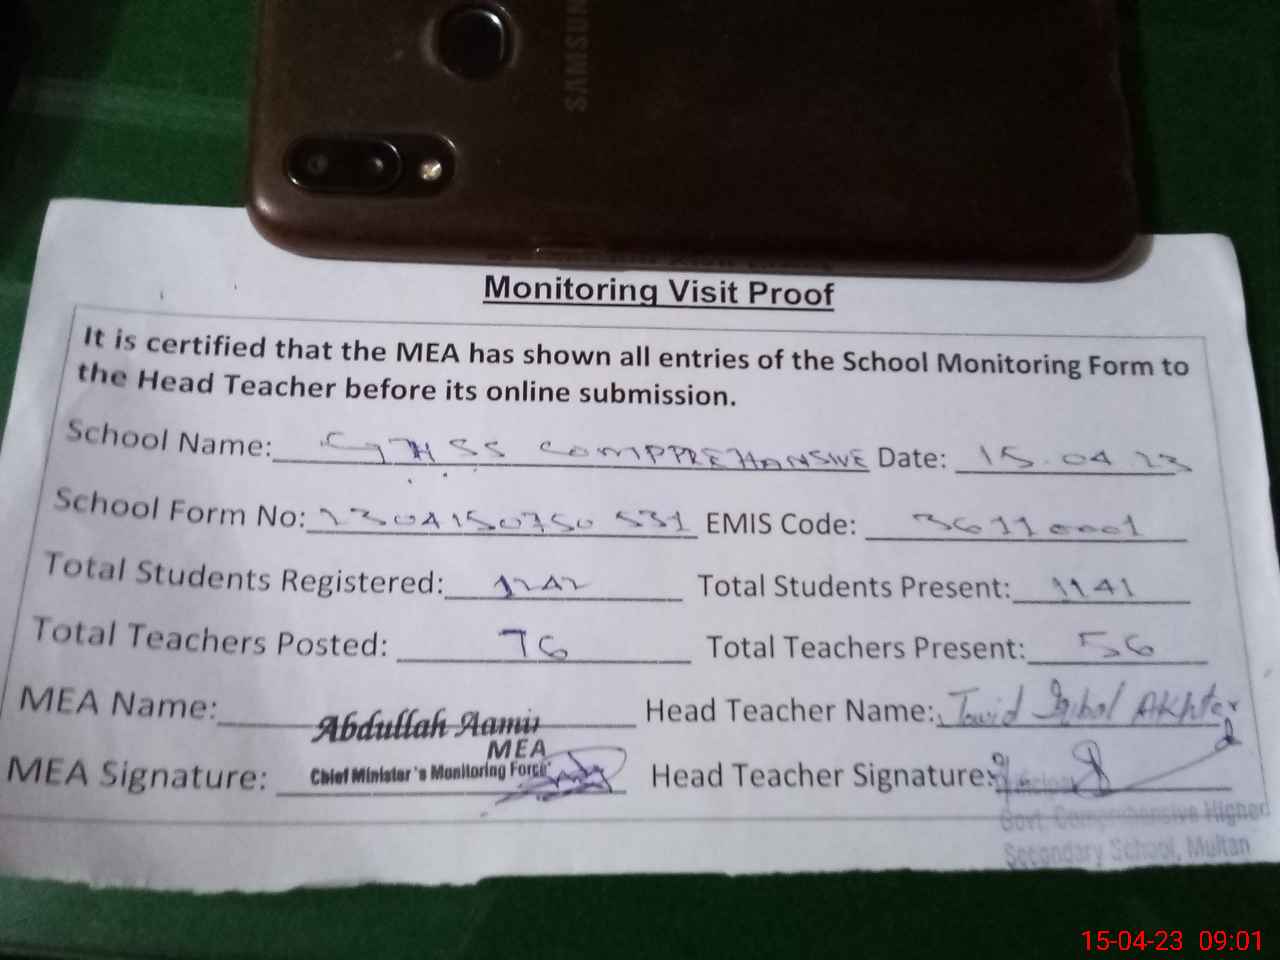 SAMSUN
Monitoring Visit Proof
It is certified that the MEA has shown all entries of the School Monitoring Form to
the Head Teacher before its online submission.
School Name: GHSS COMPPREHANSIVE Date: 15.04.23
School Form No: 2304150750531 EMIS Code: 36110001
Total Students Registered: 1242 Total Students Present: 1141
Total Teachers Posted: 76 Total Teachers Present: 56
MEA Name: Abdullah Aamir Head Teacher Name: Javid Iqbal Akhter
MEA
MEA Signature: Chief Minister's Monitoring Force Head Teacher Signature:
Principal
Govt. Comprehensive Higher
Secondary School, Multan
15-04-23 09:01